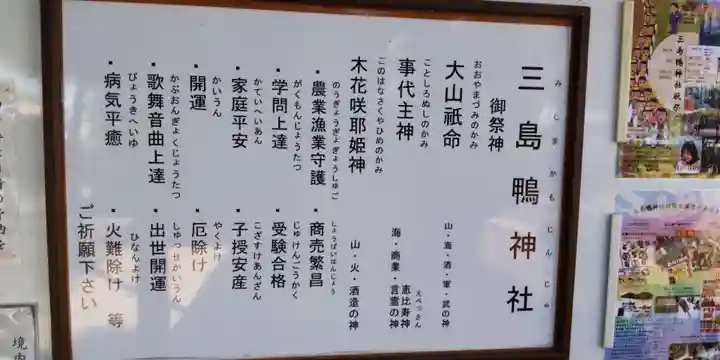 三島鴨神社
みしまかもじんじゃ
御祭神
おおやまづみのかみ
大山祇命
山・海・酒・軍・武の神
ことしろぬしのかみ
事代主神
えべっさん
恵比寿神
海・商業・言霊の神
このはなさくやひめのかみ
木花咲耶姫神
山・火・酒造の神
のうぎょうぎょぎょうしゅご
・農業漁業守護
しょうばいはんじょう
・商売繁昌
がくもんじょうたつ
・学問上達
じゅけんごうかく
・受験合格
かていへいあん
・家庭平安
こざずけあんざん
・子授安産
かいうん
・開運
やくよけ
・厄除け
かぶおんぎょくじょうたつ
・歌舞音曲上達
しゅっせかいうん
・出世開運
びょうきへいゆ
・病気平癒
ひなんよけ
・火難除け 等
ご祈願下さい
三島鴨神社秋祭
境内